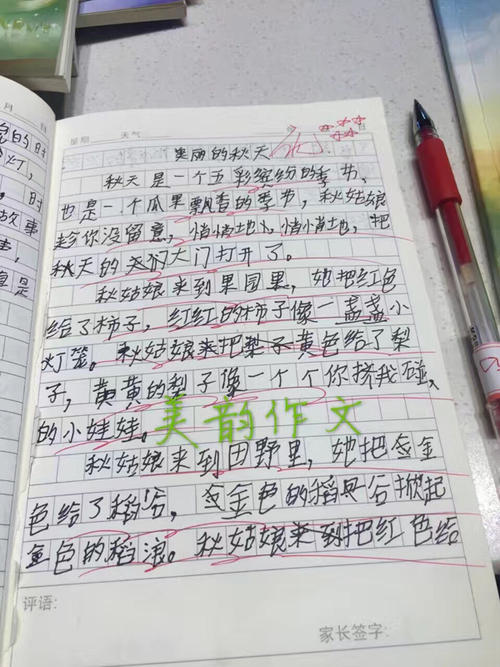 月 日
星期 天气
美丽的秋天
秋天是一个五彩缤纷的季节,
也是一个瓜果飘香的季节,秋姑娘
趁你没留意,悄悄地,悄悄地,把
秋天的大门打开了。
秋姑娘来到果园里,她把红色
给了柿子,红红的柿子像一盏盏小
灯笼。秋姑娘把黄色给了梨
子,黄黄的梨子像一个个你挤我碰
的小娃娃。
美韵作文
秋姑娘来到田野里,她把金
色给了稻谷,金色的稻谷掀起
金色的稻浪。秋姑娘把红色给
评语:
家长签字: